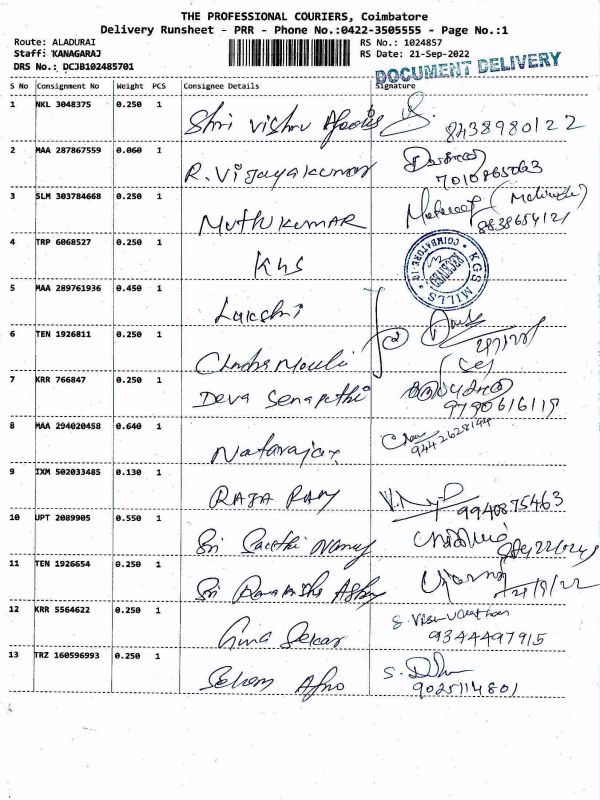 THE PROFESSIONAL COURIERS, Coimbatore
Delivery Runsheet - PRR - Phone No.:0422-3505555 - Page No.:1
Route: ALADURAI RS No.: 1024857
Staff: KANAGARAJ RS Date: 21-Sep-2022
DRS No.: DCJB102485701 DOCUMENT DELIVERY
S No Consignment No Weight PCS Consignee Details Signature
1 NKL 3048375 0.250 1 Shri Vishnu 8438980122
2 MAA 287867559 0.060 1 R. Vijayakumar 7010865063
3 SLM 303784668 0.250 1 Muthukumar 8838654121
4 TRP 6068527 0.250 1 KGS KGS MILLS COIMBATORE RECEIVED
5 MAA 289761936 0.450 1 Lakshmi
6 TEN 1926811 0.250 1 Chandra Mouli
7 KRR 766847 0.250 1 Deva Senapathi 9790616117
8 MAA 294020458 0.640 1 Natarajan 9442628194
9 IXM 502033485 0.130 1 RAJA RAM 9940875463
10 UPT 2089905 0.550 1 Sri Sakthi
11 TEN 1926654 0.250 1 Sri 21/9/22
12 KRR 5564622 0.250 1 Sekar 9344497915
13 TRZ 160596993 0.250 1 9025114801